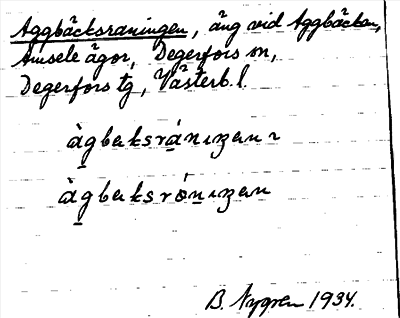 Aggbäcksraningen, äng vid Aggbäcken,
Amsele ägor, Degerfors sn,
Degerfors tg, Västerb. l.
àgbaksránıŋen
àgbaksrónıŋen
B. Nygren 1934.